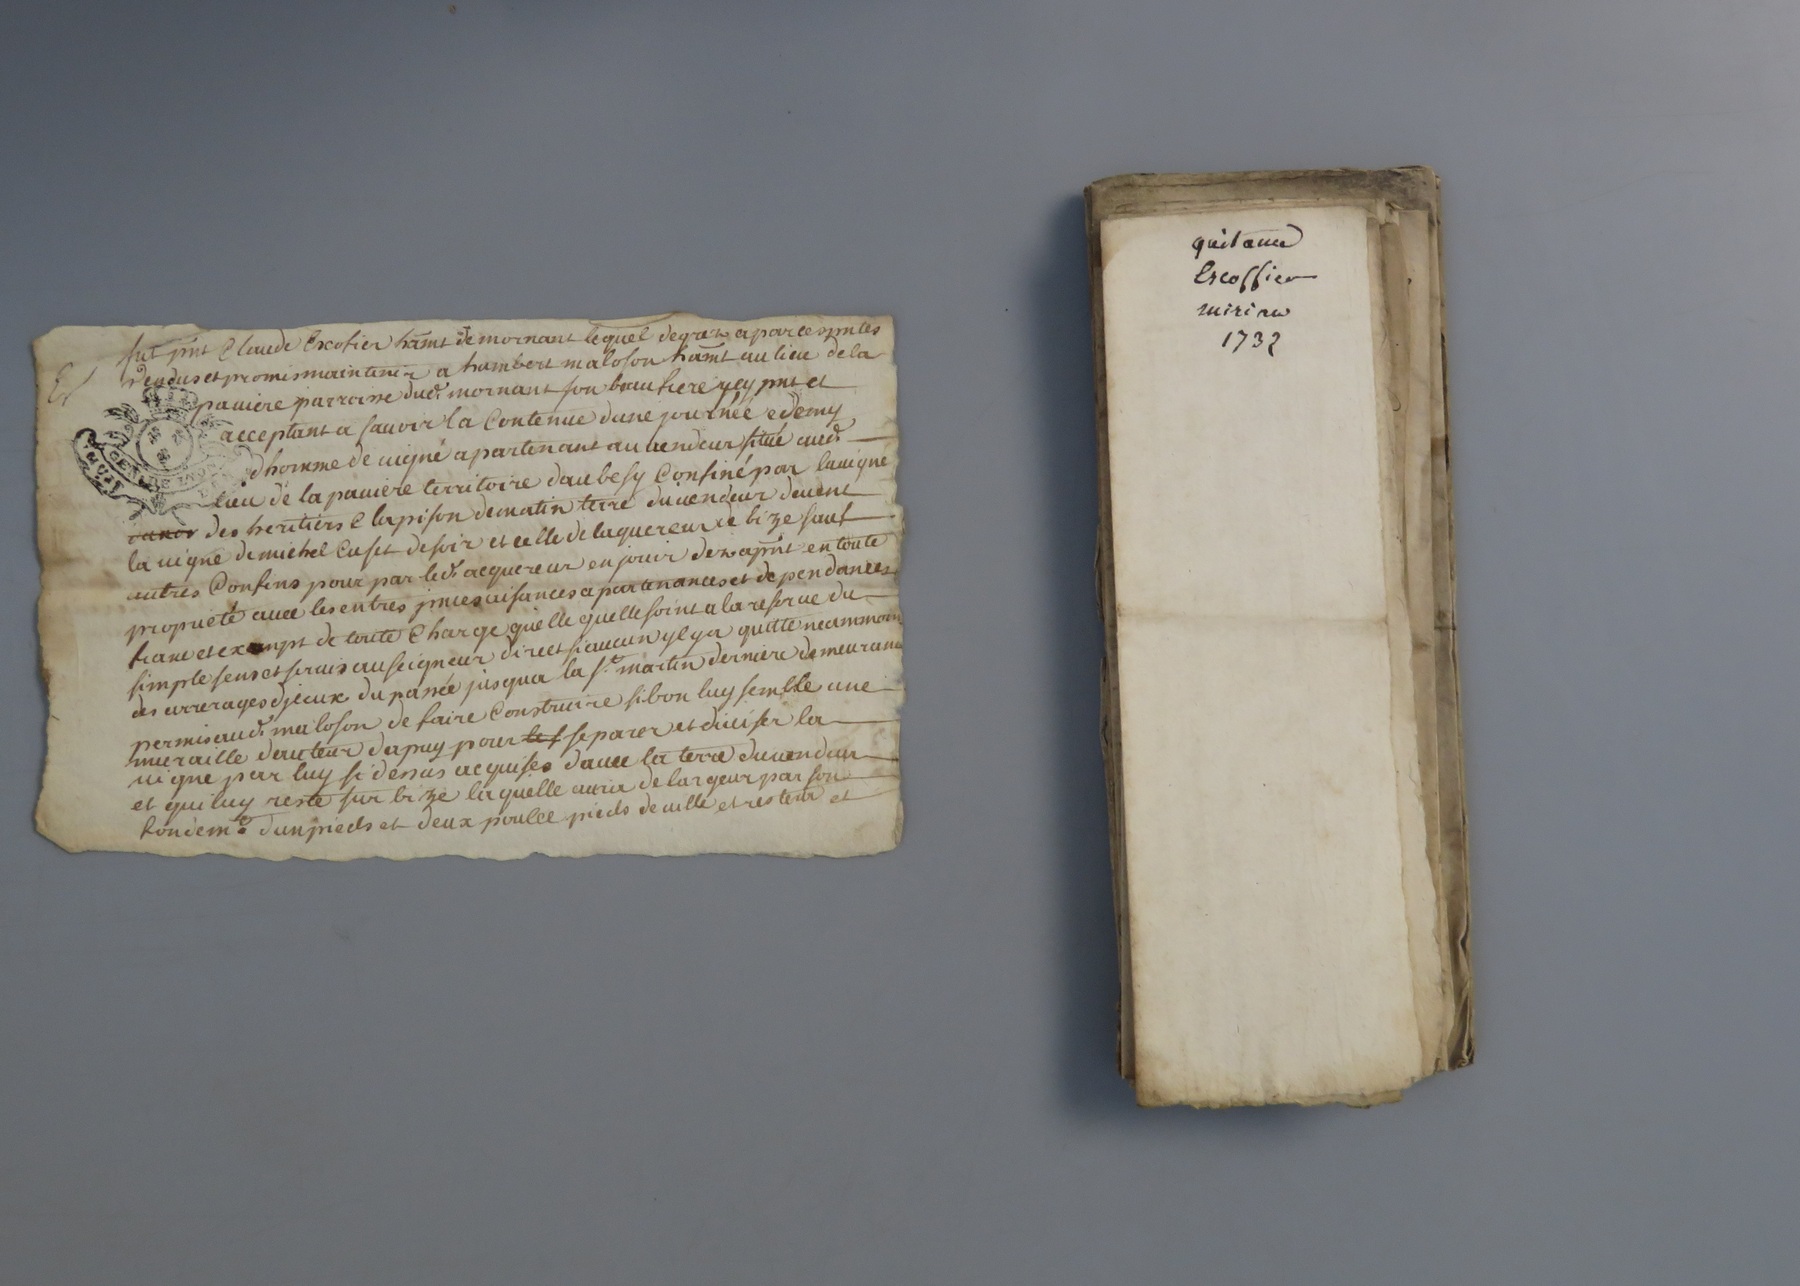 fut pnt Claude Excofier hant de mornant lequel degré a par ces pntes
Vendus et promis maintenir a humbert maloson hant au lieu de la
paviere parroisse dud mornant son beaufrere icy pnt et
acceptant a savoir la Contenue dune journée edemy
dhomme de vigne apartenant au vendeur situé aud
lieu de la paviere territoire daubesy Confiné par la vigne
des heritiers Clapison de matin terre du vendeur devent
la vigne de michel Cuset de soir et celle de laquereur de bize sauf
autres Confins pour par led acquereur en jouir des apnt en toute
proprieté avec les entres jssues aisances apartenances et dependances
franc et exempt de toute Charge quelle quelle soint a la reserve du
simple sens et servis au seigneur direct si aucun yl y a quitte neammoins
des arrerages djceux du passée jusqua la st martin derniere demeurant
permis aud maloson de faire Construire si bon luy semble une
muraille dauteur dapuy pour les separer et diviser la
vigne par luy si dessus acquises davec la terre du vendeur
et qui luy reste sur bize laquelle aura de largeur par son
fondemt dun pieds et deux poulce pieds de ville et restera et
quitance
Escoffier
1732